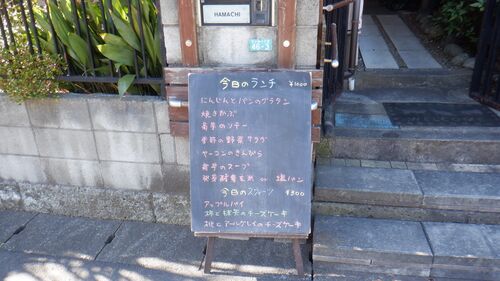 HAMACHI
46-3
今日のランチ ¥1000
にんじんとパンのグラタン
焼きかぶ
菊芋のソテー
季節の野菜サラダ
ヤーコンのきんぴら
菊芋のスープ
発芽酵素玄米 or 塩パン
今日のスイーツ ¥500
アップルパイ
柿と のチーズケーキ
桃とアールグレイのチーズケーキ